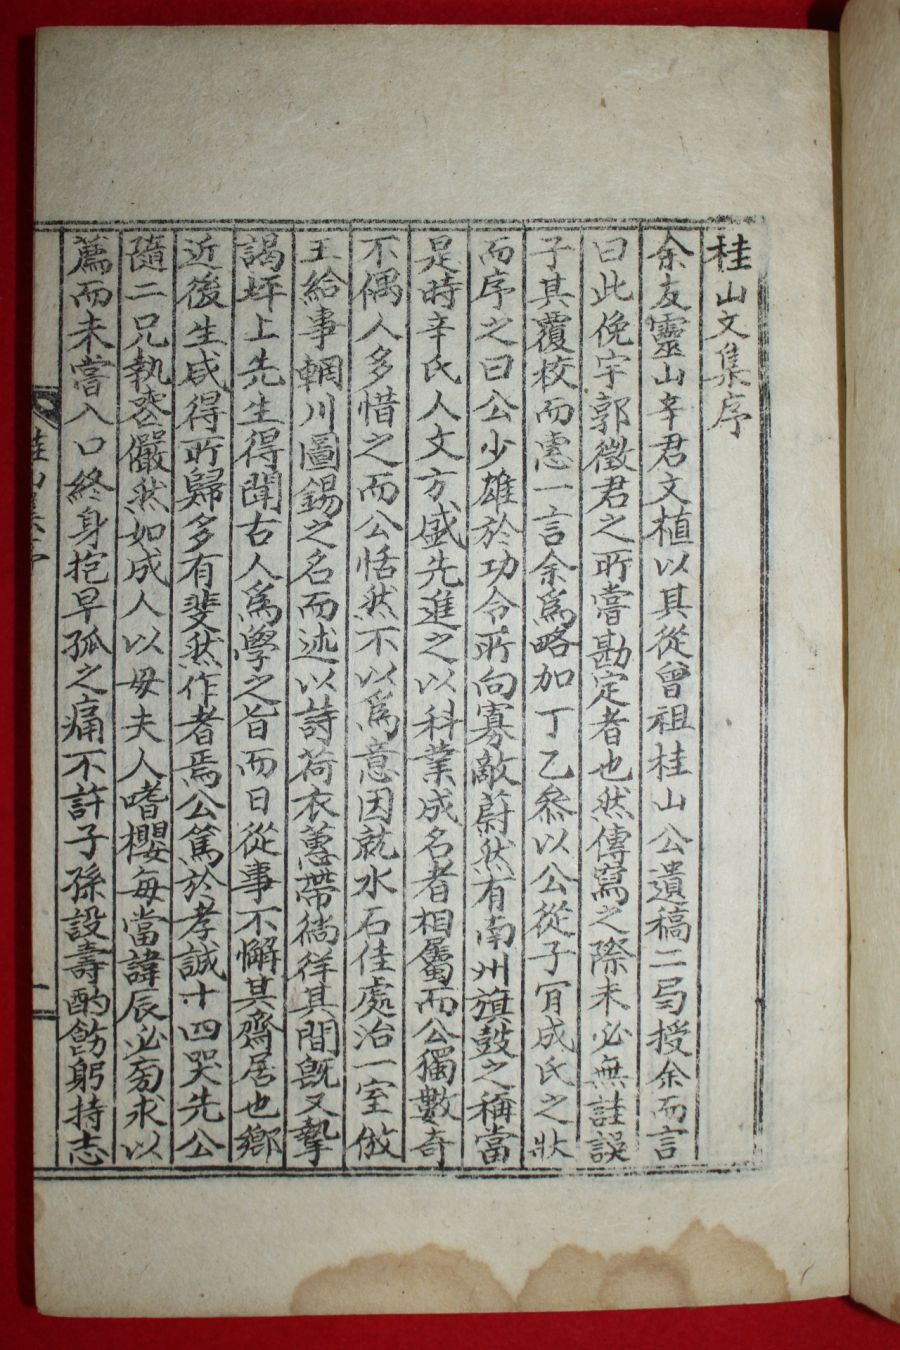 桂山文集序
余友靈山辛君文植以其從曾祖桂山公遺稿二局授余而言
曰此俛宇郭徵君之所嘗勘定者也然傳寫之際未必無詿誤
子其覆校而惠一言余爲略加丁乙參以公從子肎成氏之狀
而序之曰公少雄於功令所向寡敵蔚然有南州旗鼓之稱當
是時辛氏人文方盛先進之以科業成名者相屬而公獨數奇
不偶人多惜之而公恬然不以爲意因就水石佳處治一室倣
王給事輞川圖錫之名而述以詩荷衣蕙帶徜徉其間旣又摯
謁坪上先生得聞古人爲學之旨而日從事不懈其齋居也鄉
近後生咸得所歸多有斐然作者焉公篤於孝誠十四哭先公
隨二兄執喪儼然如成人以母夫人嗜櫻每當諱辰必匃求以
薦而未嘗入口終身抱早孤之痛不許子孫設壽酌飭躬持志
桂山集序
一